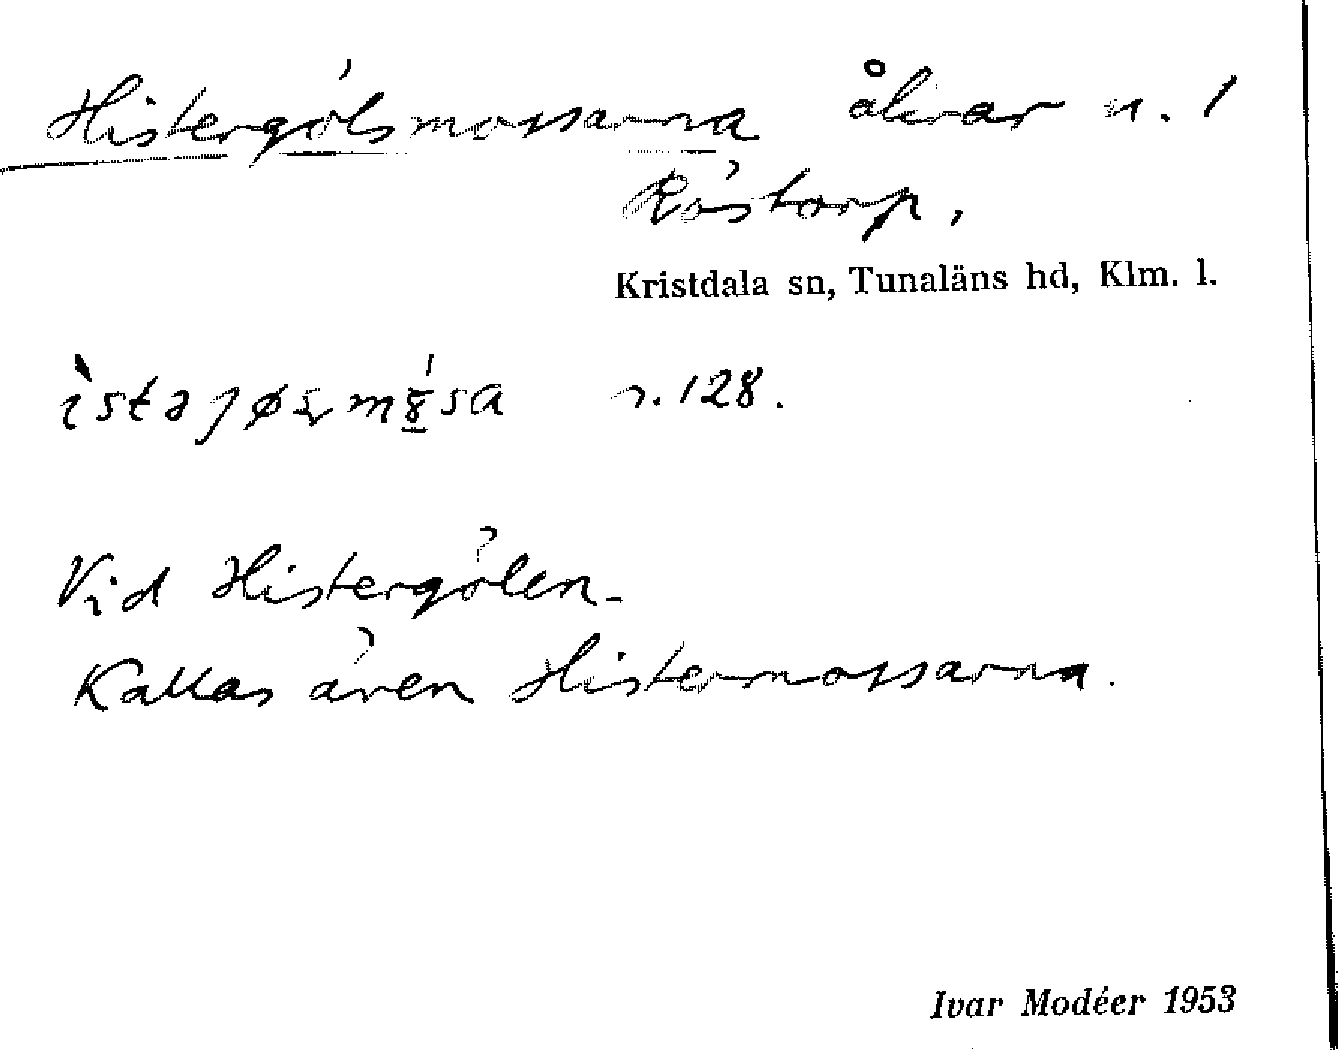 Histergölsmossarna åkrar n. 1
Röstorp.
Kristdala sn, Tunaläns hd, Klm. l.
r. 128.
Vid Histergölen.
Kallas även Histermossarna.
Ivar Modéer 1953